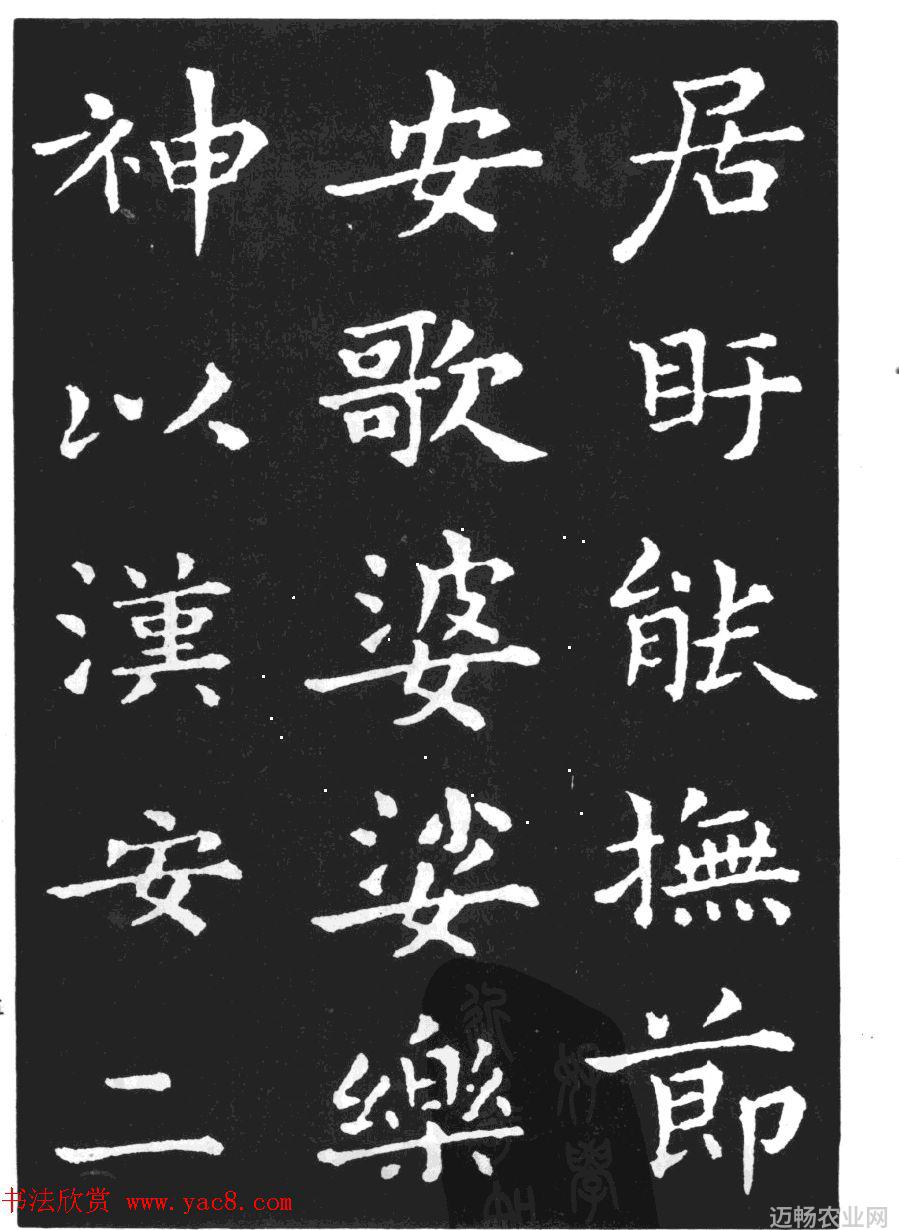 居盱能撫節
安歌婆娑樂
神以漢安二
书法欣赏 www.yac8.com
迈畅农业网